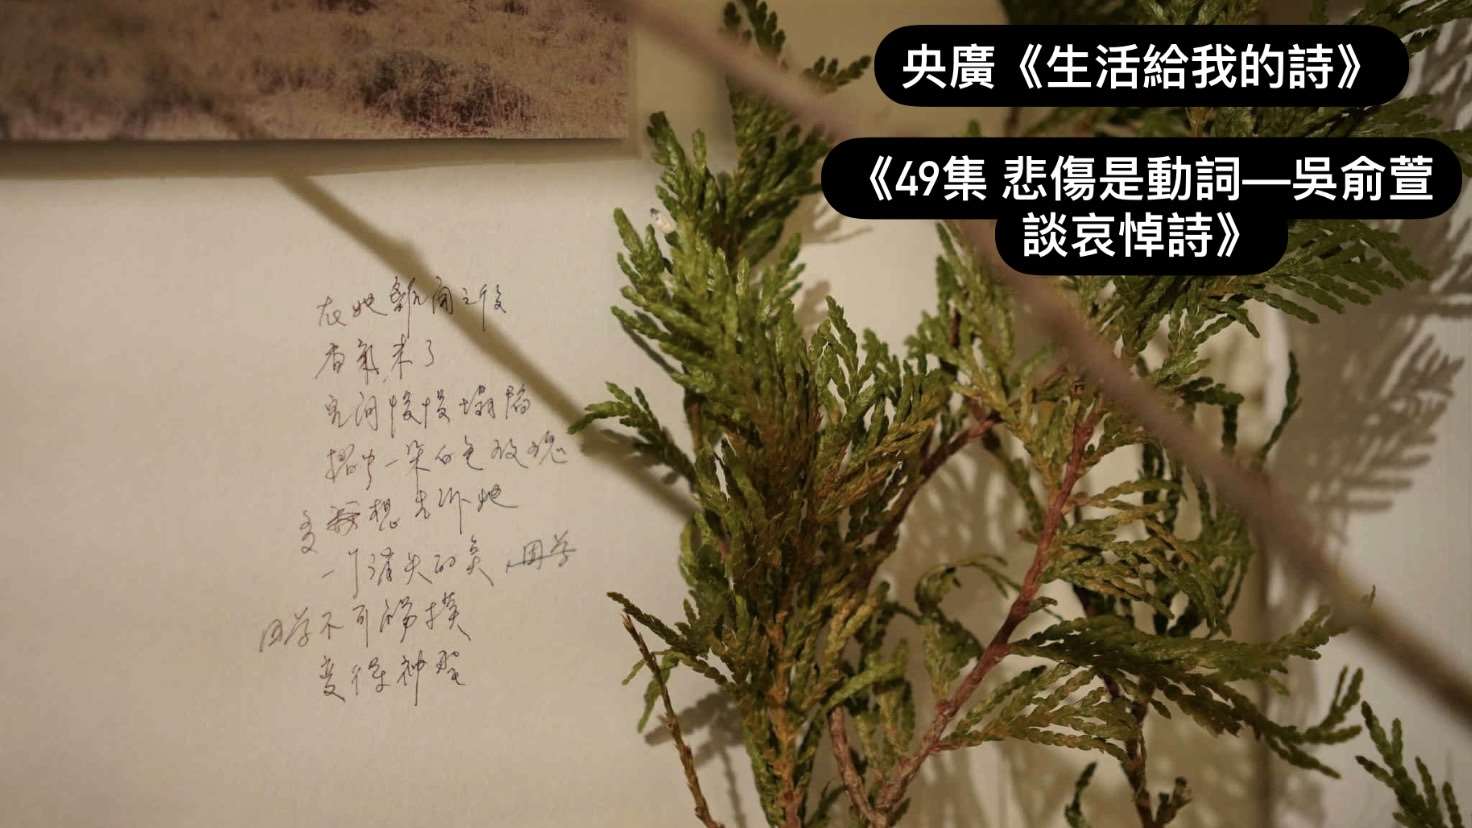 央廣《生活給我的詩》
《49集 悲傷是動詞—吳俞萱
談哀悼詩》
在她離開之後
香氣來了
空間慢慢塌陷
摺出一朵白色玫瑰
多想告訴她
一個消失的美
因為不可觸摸
變得神聖